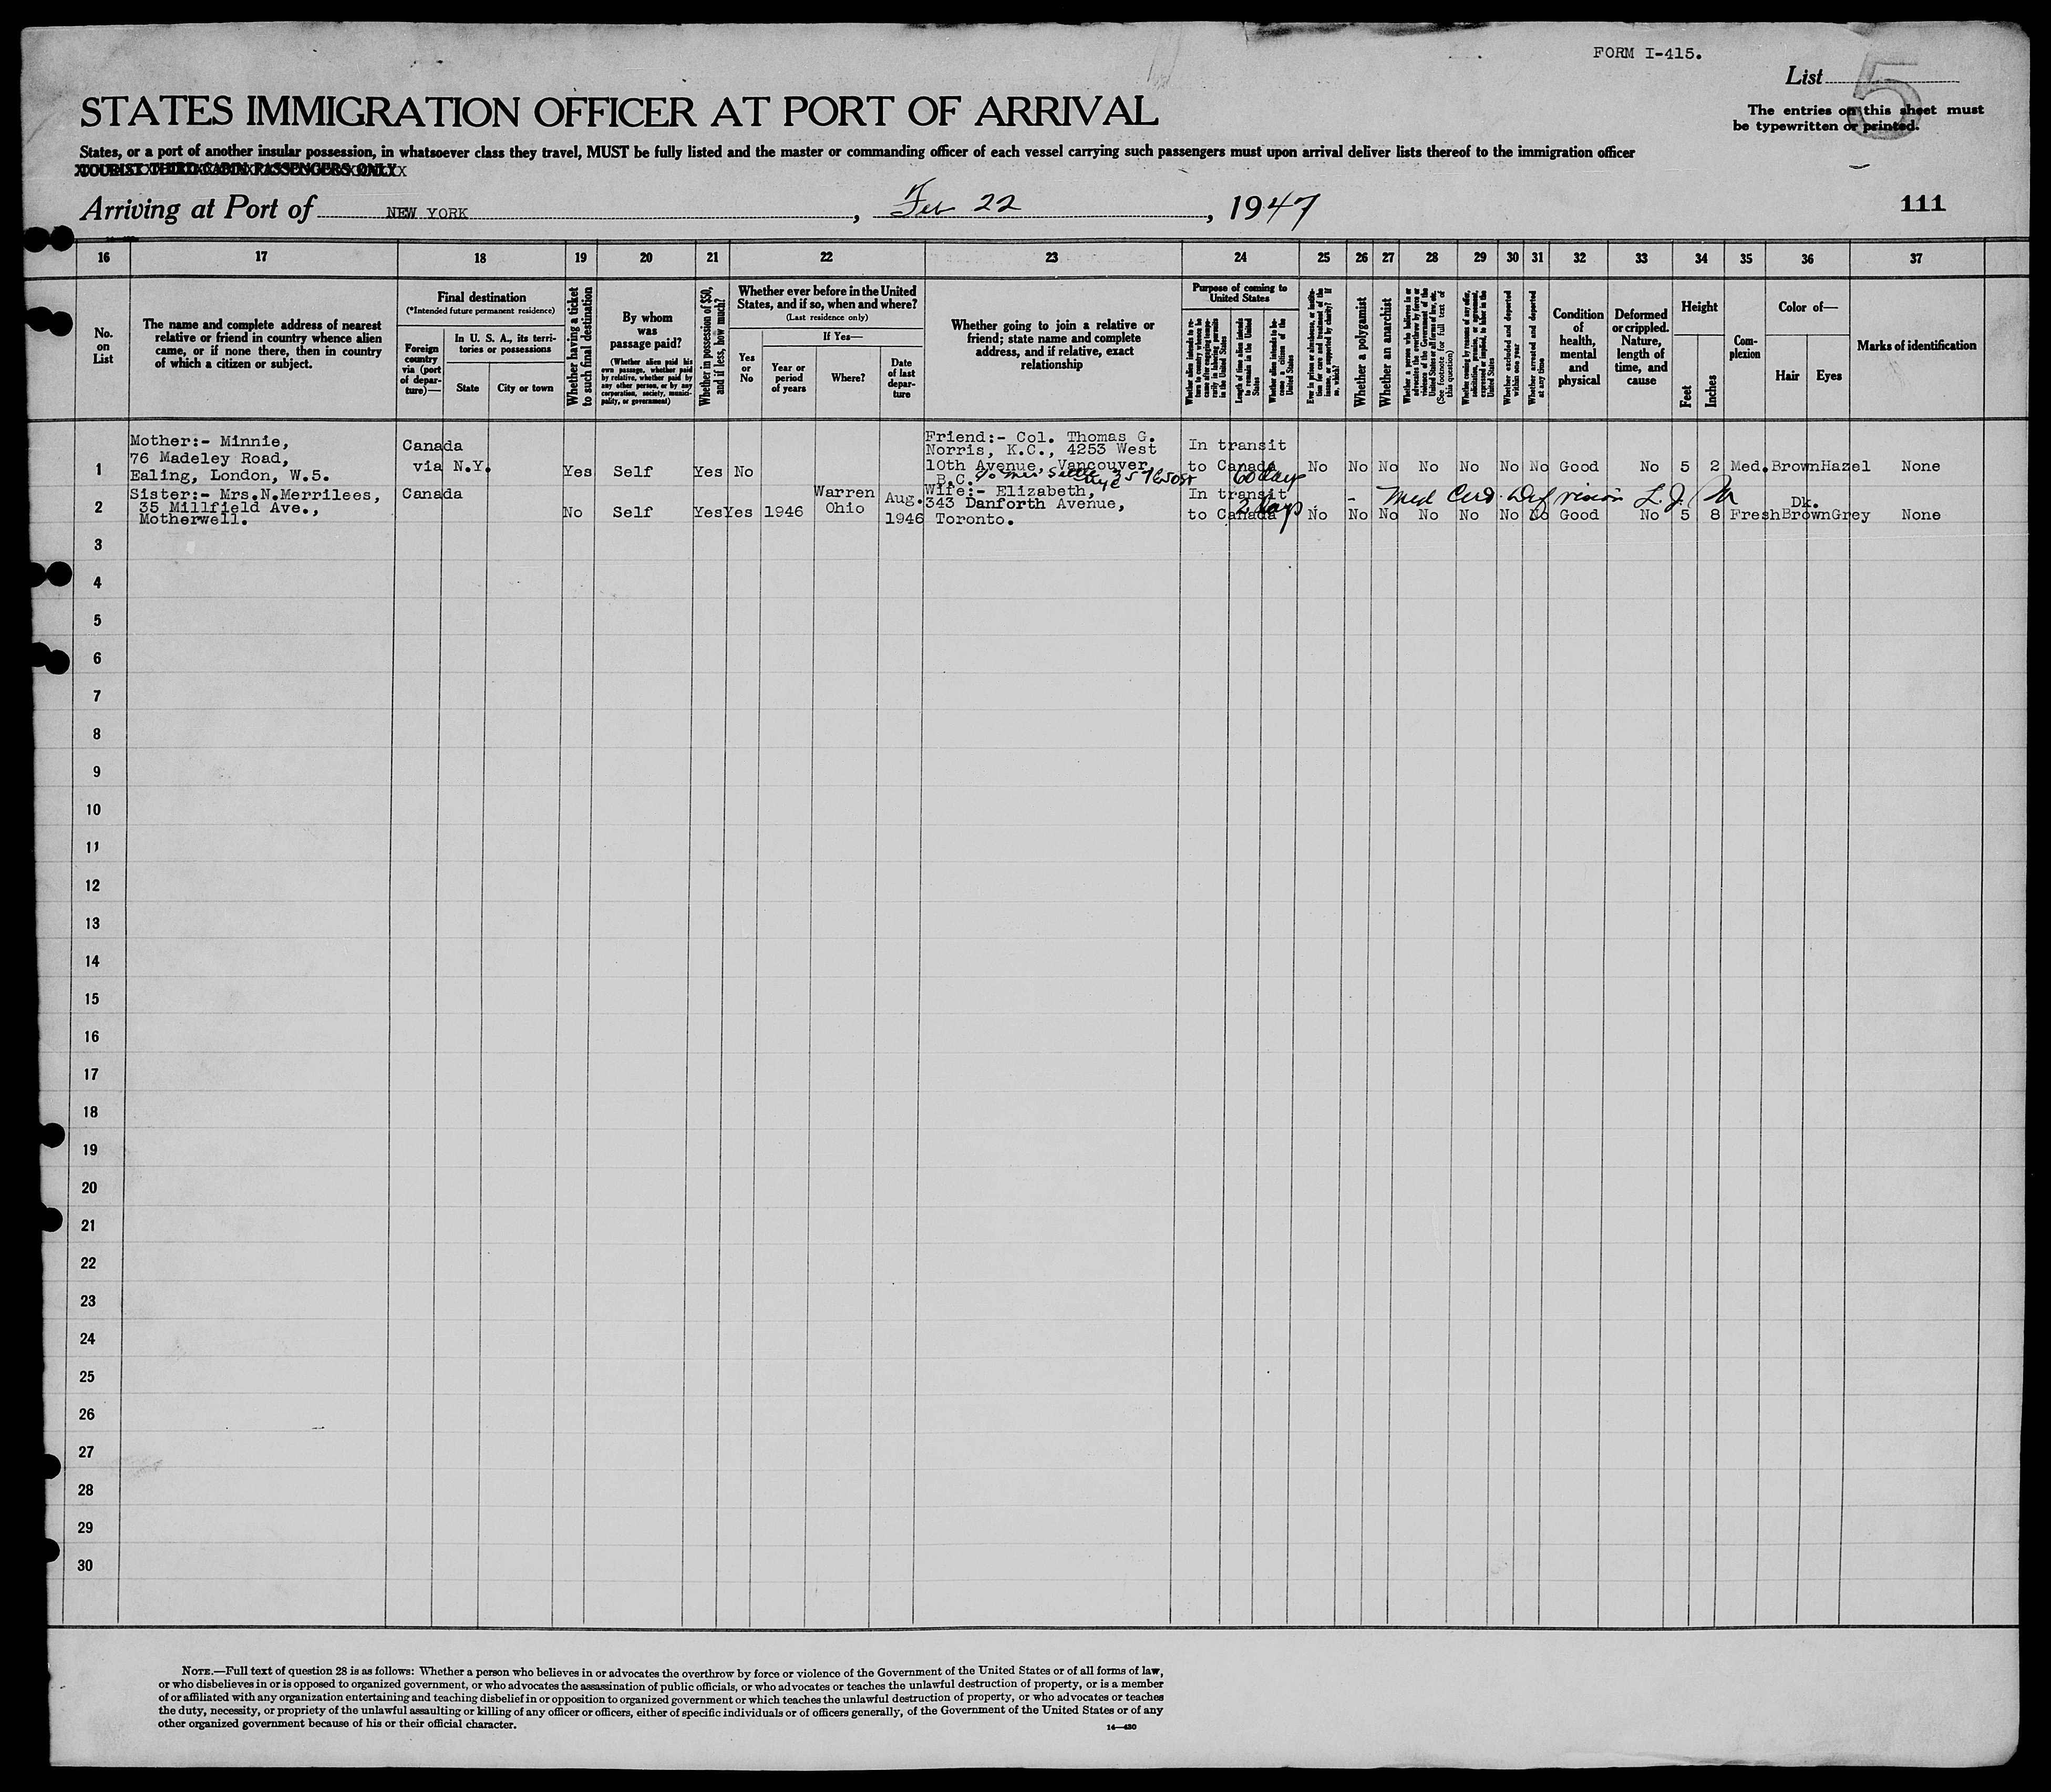 FORM I-415.
List 5
STATES IMMIGRATION OFFICER AT PORT OF ARRIVAL
The entries on this sheet must
be typewritten or printed.
States, or a port of another insular possession, in whatsoever class they travel, MUST be fully listed and the master or commanding officer of each vessel carrying such passengers must upon arrival deliver lists thereof to the immigration officer
TOURIST THIRD CABIN PASSENGERS ONLY
Arriving at Port of NEW YORK, Feb 22, 1947
111
16 17 18 19 20 21 22 23 24 25 26 27 28 29 30 31 32 33 34 35 36 37
No.
on
List
The name and complete address of nearest
relative or friend in country whence alien
came, or if none there, then in country
of which a citizen or subject.
Final destination
(*Intended future permanent residence)
Foreign
country
via (port
of depar-
ture)—
In U. S. A., its terri-
tories or possessions
State
City or town
Whether having a ticket
to such final destination
By whom
was
passage paid?
(Whether alien paid his
own passage, whether paid
by relative, whether paid by
any other person, or by any
corporation, society, munici-
pality, or government)
Whether in possession of $50,
and if less, how much?
Whether ever before in the United
States, and if so, when and where?
(Last residence only)
Yes
or
No
If Yes—
Year or
period
of years
Where?
Date
of last
depar-
ture
Whether going to join a relative or
friend; state name and complete
address, and if relative, exact
relationship
Purpose of coming to
United States
Whether alien intends to re-
turn to country whence he
came after engaging tempo-
rarily in laboring pursuits
in the United States
Length of time alien intends
to remain in the United
States
Whether alien intends to be-
come a citizen of the
United States
Ever in prison or almshouse, or institu-
tion for care and treatment of the
insane, or supported by charity? If
so, which?
Whether a polygamist
Whether an anarchist
Whether a person who believes in or
advocates the overthrow by force or
violence of the Government of the
United States or all forms of law, etc.
(See footnote for full text of
this question)
Whether coming by reason of any offer,
solicitation, promise, or agreement,
expressed or implied, to labor in the
United States
Whether excluded and deported
within one year
Whether arrested and deported
at any time
Condition
of
health,
mental
and
physical
Deformed
or crippled.
Nature,
length of
time, and
cause
Height
Feet
Inches
Com-
plexion
Color of—
Hair
Eyes
Marks of identification
1
Mother:- Minnie,
76 Madeley Road,
Ealing, London, W.5.
Canada
via N.Y.
Yes Self Yes No
Friend:- Col. Thomas G.
Norris, K.C., 4253 West
10th Avenue, Vancouver,
B.C.
In transit
to Canada
60 days
No No No No No No No Good No 5 2 Med. Brown Hazel None
2
Sister:- Mrs.N.Merrilees,
35 Millfield Ave.,
Motherwell.
Canada
No Self Yes Yes 1946
Warren
Ohio
Aug.
1946
Wife:- Elizabeth,
343 Danforth Avenue,
Toronto.
In transit
to Canada
2 days
Med Cert. Def vision
No No No No No No No Good No 5 8 Fresh Dk. Brown Grey None
3
4
5
6
7
8
9
10
11
12
13
14
15
16
17
18
19
20
21
22
23
24
25
26
27
28
29
30
NOTE.—Full text of question 28 is as follows: Whether a person who believes in or advocates the overthrow by force or violence of the Government of the United States or of all forms of law,
or who disbelieves in or is opposed to organized government, or who advocates the assassination of public officials, or who advocates or teaches the unlawful destruction of property, or is a member
of or affiliated with any organization entertaining and teaching disbelief in or opposition to organized government or which teaches the unlawful destruction of property, or who advocates or teaches
the duty, necessity, or propriety of the unlawful assaulting or killing of any officer or officers, either of specific individuals or of officers generally, of the Government of the United States or of any
other organized government because of his or their official character.
14—430